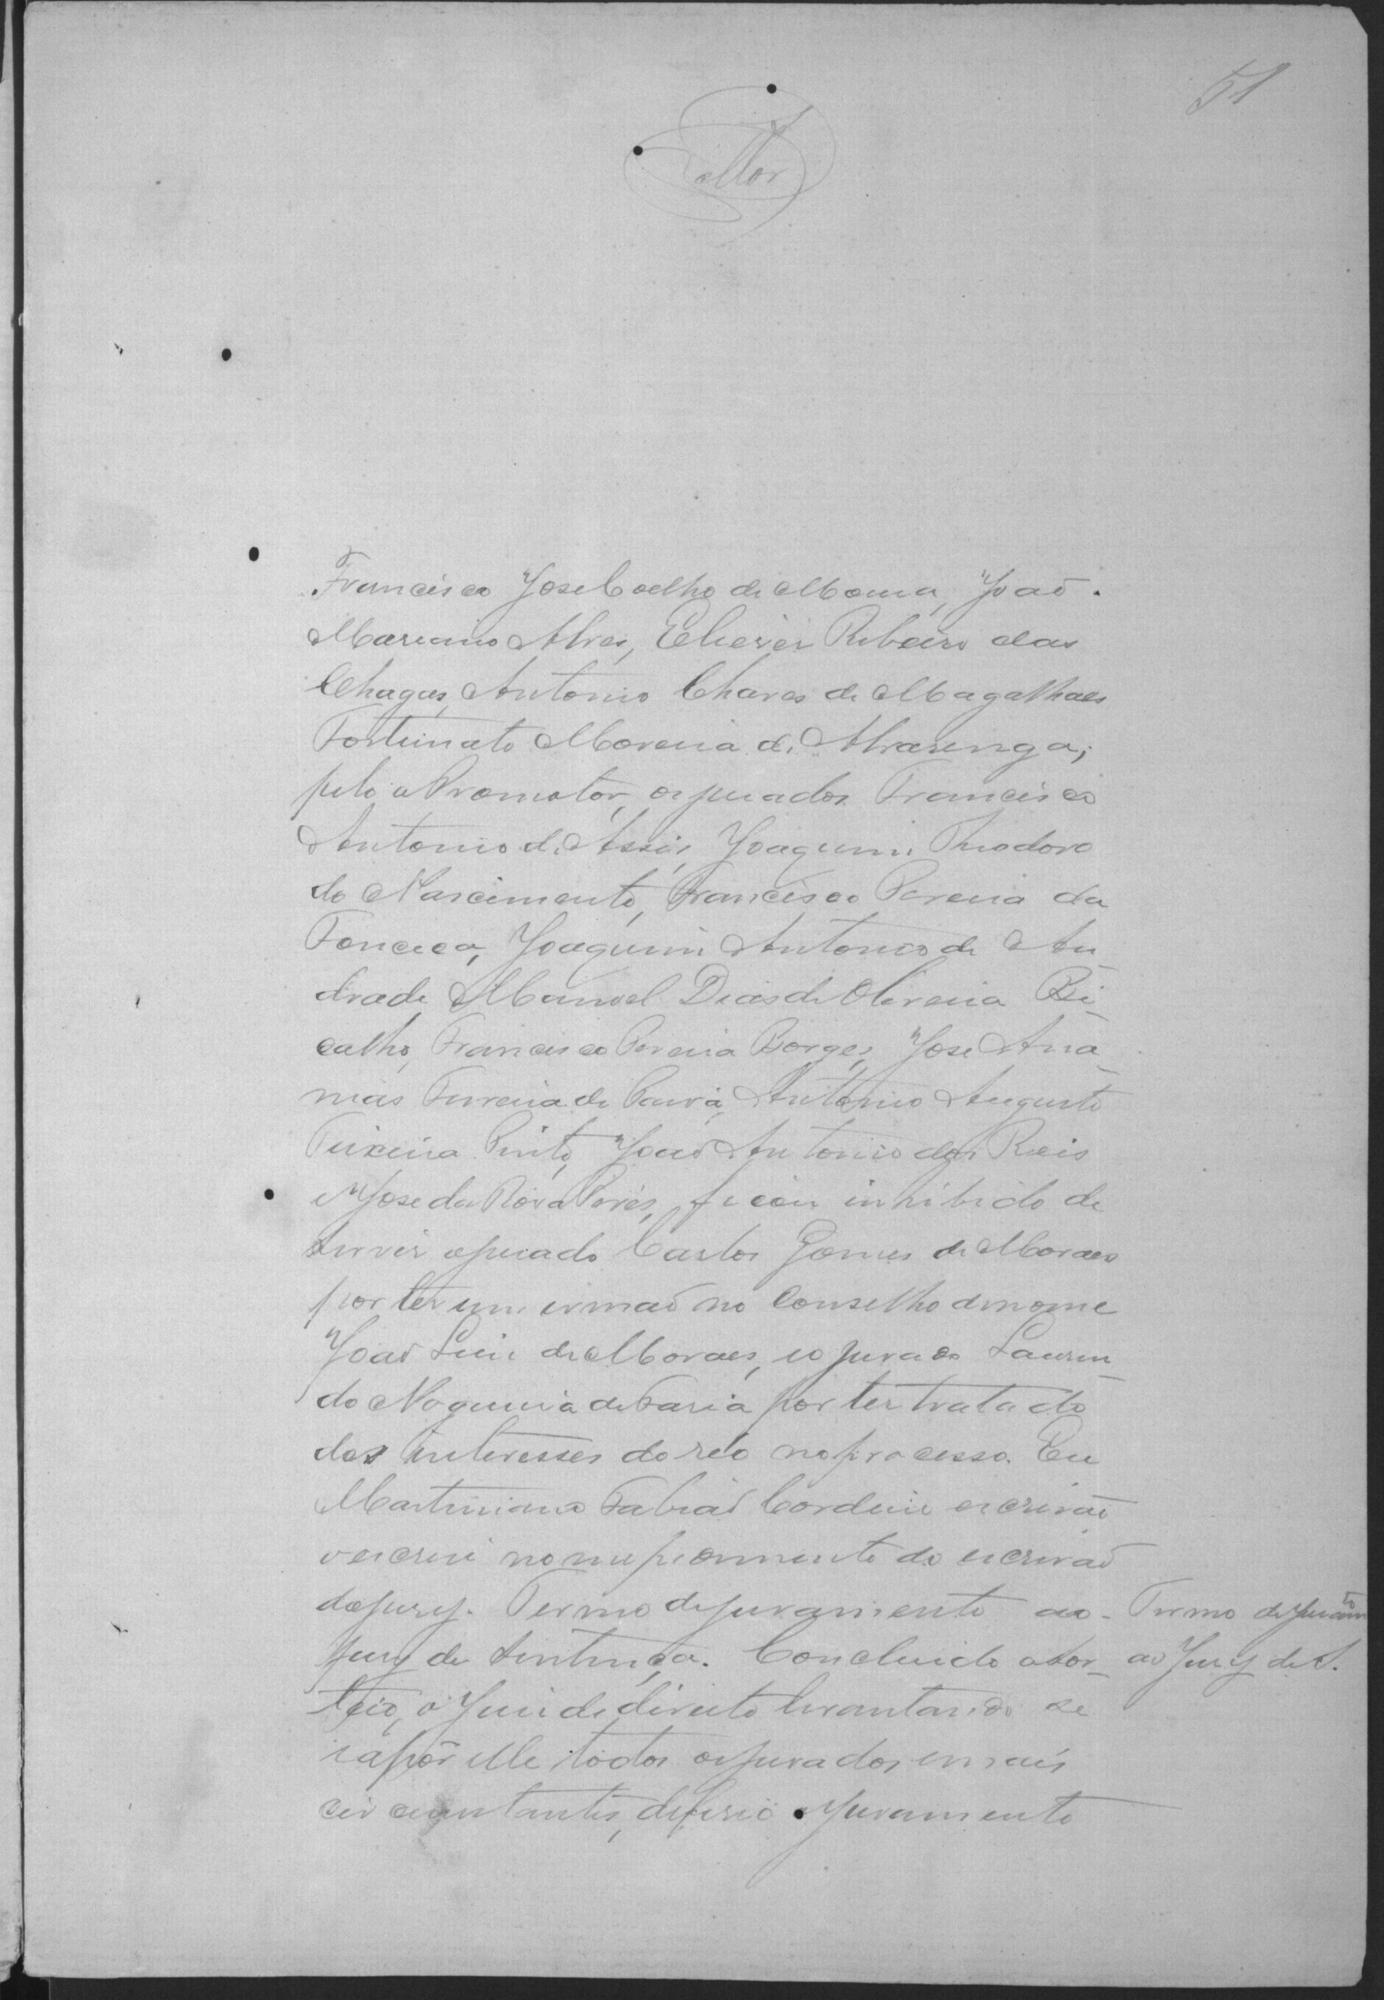 51
Francisco José Coelho de Moura, João
Mariano Alves, Eliezer Ribeiro das
Chagas, Antonio Chaves de Magalhaes
Fortunato Moreira de Alvarenga;
pelo o Promotor, os jurados Francisco
Antonio de Assis, Joaquim Theodoro
do Nascimento, Francisco Pereira da
Fonceca, Joaquim Antonio de An
drade, Manoel Dias de Oliveira Bi
calho, Francisco Pereira Borges, José Ana
nias Ferreira de Paiva, Antonio Augusto
Teixeira Pinto, João Antonio dos Reis
e José da Rosa Peres, ficou inhibido de
servir o jurado Carlos Gomes de Moraes
por ter um irmaõ no Conselho de nome
João Luiz de Moraes, e o jurado Laurin
do Nogueira de Faria por ter tratado
dos interesses do reo no processo. Eu
Martiniano Fabiaõ Cordeiro escrivaõ
o escrevi no impedimento do escrivaõ
do jury. Termo de juramento ao
Jury de Sentença. Concluido o sor
teio, o Juiz de direito levantando se
e após elle todos os jurados e mais
circunstantes, deferio o juramento
Termo de juramto
ao Jury de S.